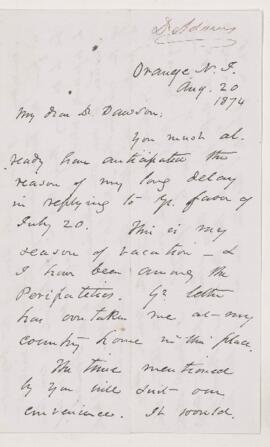 Dr Adams
Orange N. J.
Aug. 20
1874
My dear Dr. Dawson:
You must al-
ready have anticipated the
reason of my long delay
in replying to yr. favor of
July 20. This is my
season of vacation - &
I have been among the
Peripatetics. Yr letter
has overtaken me at my
country home in this place.
The time mentioned
by you will suit our
convenience. It would